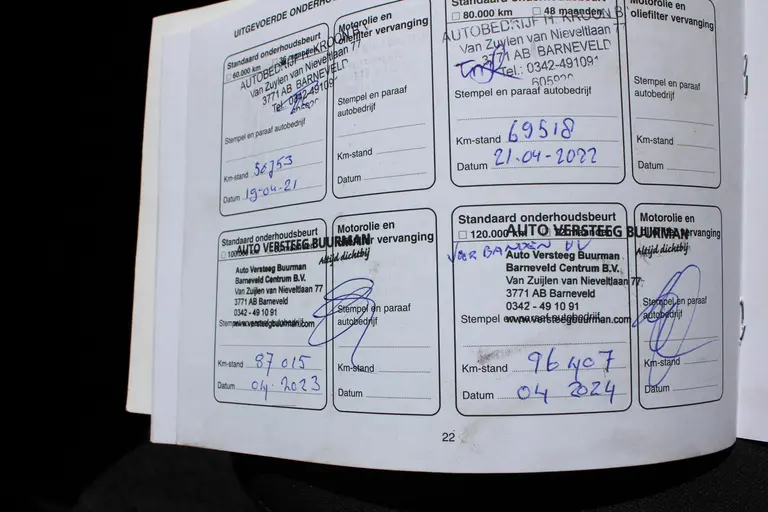 UITGEVOERDE ONDERHO
Standaard onderhoudsbeurt
60.000 km
AUTOBEDRIJF H. KROON B.
Van Zuylen van Nieveltlaan 77
3771 AB BARNEVELD
Tel.: 0342-491091
605920
Stempel en paraaf autobedrijf
Km-stand
Datum 19-04-21
Motorolie en
oliefilter vervanging
Stempel en paraaf
autobedrijf
Km-stand
Datum
Standaard onderhoudsbeurt
80.000 km 48 maanden
AUTOBEDRIJF H. KROON B
Van Zuylen van Nieveltlaan 77
3771 AB BARNEVELD
Tel.: 0342-491091
605920
Stempel en paraaf autobedrijf
Km-stand 69518
Datum 21-04-2022
Motorolie en
oliefilter vervanging
Stempel en paraaf
autobedrijf
Km-stand
Datum
Standaard onderhoudsbeurt
AUTO VERSTEEG BUURMAN
Altijd dichtbij
Auto Versteeg Buurman
Barneveld Centrum B.V.
Van Zuijlen van Nieveltlaan 77
3771 AB Barneveld
0342 - 49 10 91
www.versteegbuurman.com
Km-stand 87015
Datum 04-2023
Motorolie en
oliefilter vervanging
Stempel en paraaf
autobedrijf
Km-stand
Datum
Standaard onderhoudsbeurt
120.000 km
AUTO VERSTEEG BUURMAN
Altijd dichtbij
VOORBANDEN VV
Auto Versteeg Buurman
Barneveld Centrum B.V.
Van Zuijlen van Nieveltlaan 77
3771 AB Barneveld
0342 - 49 10 91
www.versteegbuurman.com
Km-stand 96407
Datum 04 2024
Motorolie en
oliefilter vervanging
Stempel en paraaf
autobedrijf
Km-stand
Datum
22